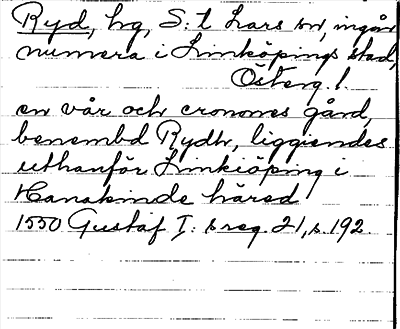 Ryd, hg, S:t Lars sn, ingår
numera i Linköpings stad,
Österg. l.
en vår och cronones gård,
benembd Rydh, liggiendes
uthanför Linkiöping i
Hanakinde häred
1550 Gustaf I: s reg. 21, s. 192.